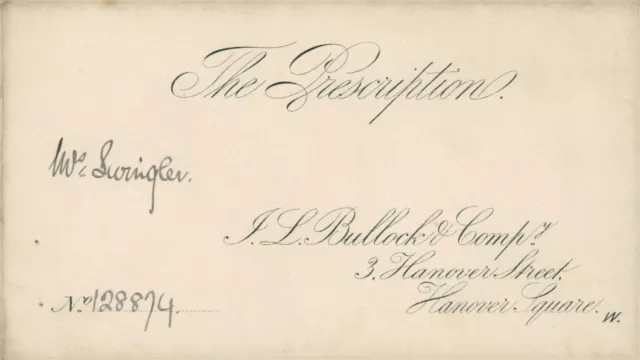 The Prescription.
Mrs. Swingler.
J. L. Bullock & Compy.
3, Hanover Street,
Hanover Square.
W.
No 128874.